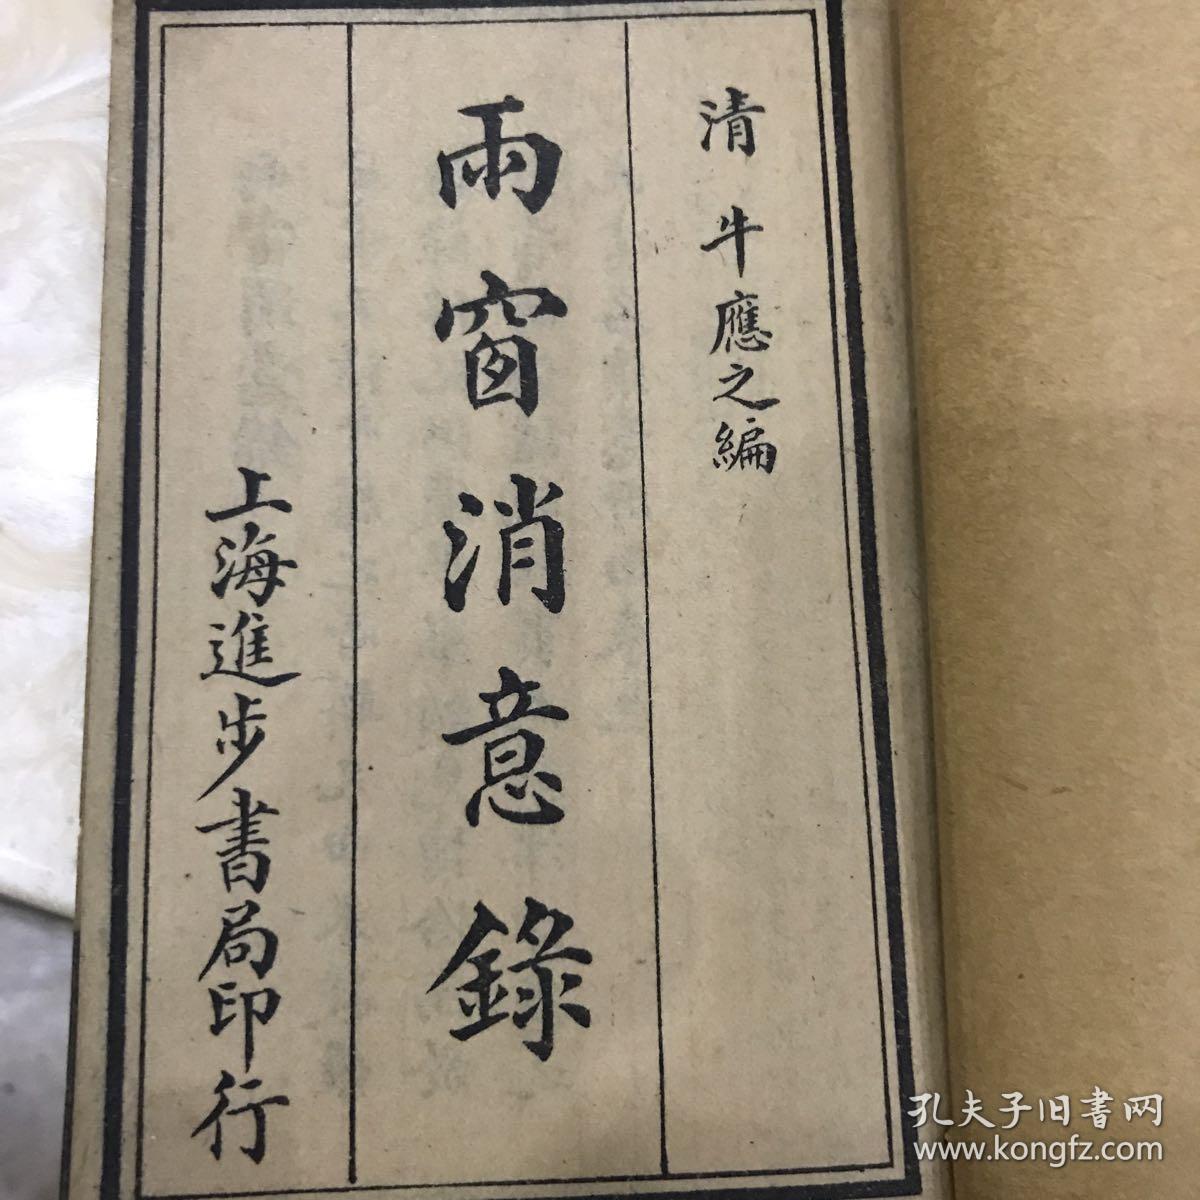 清 牛應之編
雨窗消意錄
上海進步書局印行
孔夫子旧書网
www.kongfz.com